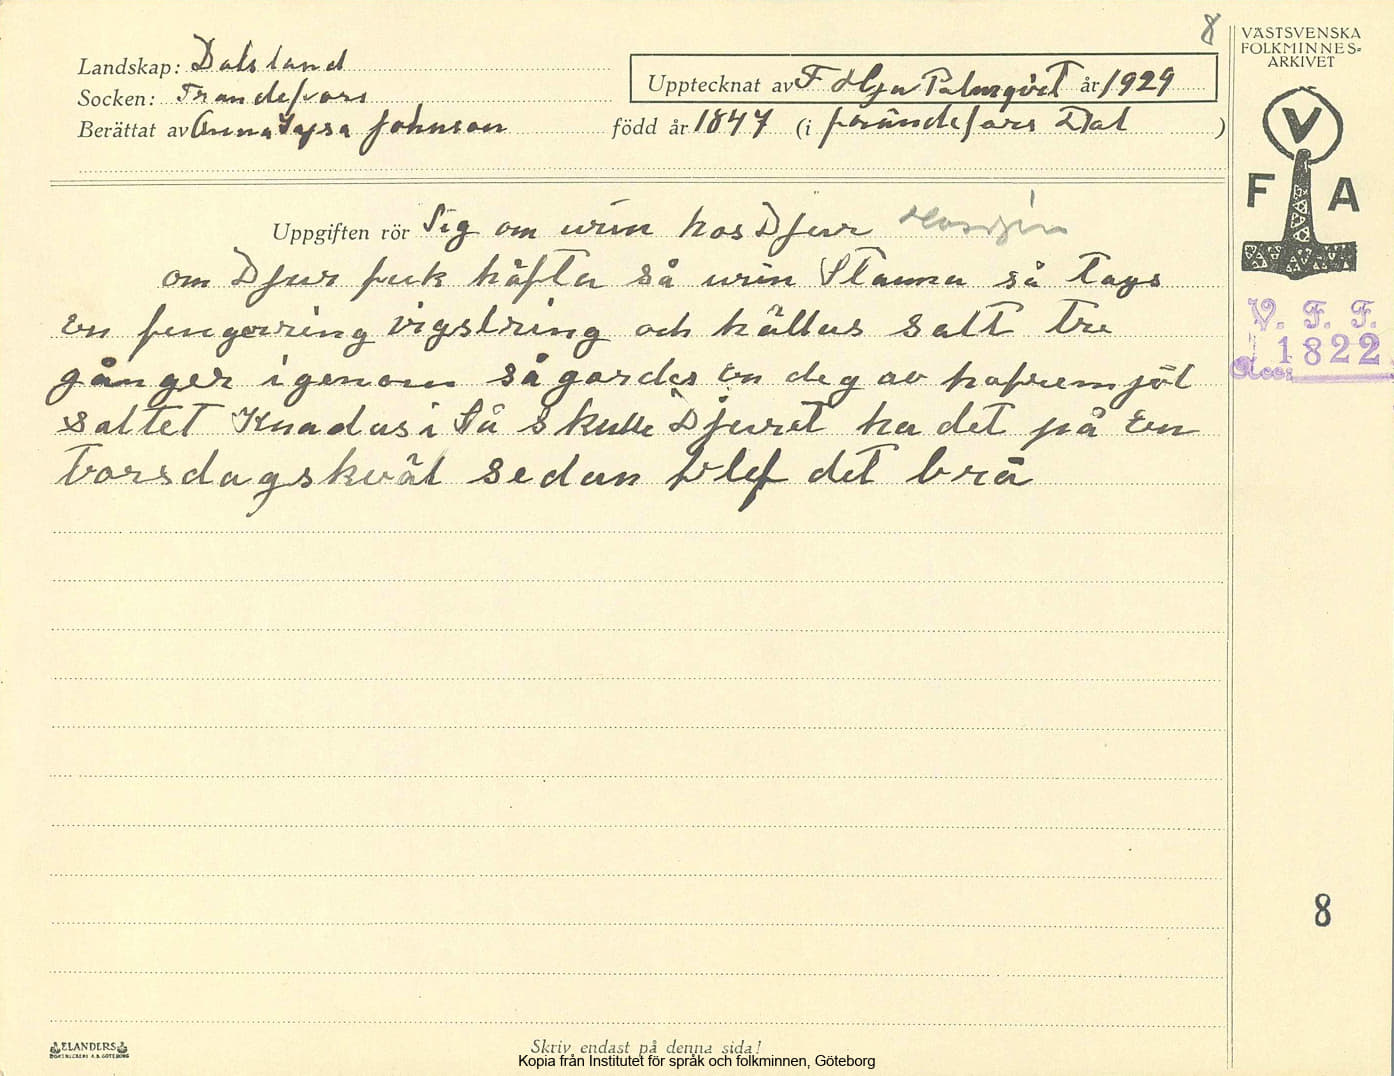 8
VÄSTSVENSKA
FOLKMINNES-
ARKIVET
Landskap: Dalsland
Socken: Frändefors
Upptecknat av F Olga Palmqvist år 1929
Berättat av Anna Kajsa Johnson född år 1847 (i Frändefors Dal )
V
F A
Uppgiften rör Sig om urin hos Djur Husdjur
om Djur fick häfta så urin Stanna så togs
En fengerring vigslring och hälldes salt tre
gånger igenom så gordes En deg av hafremjöl
saltet Knadas i Så skulle Djuret ha det på En
torsdagskväl sedan blef det bra
V. F. F.
1822
Acc:
8
ELANDERS
BOKTRYCKERI A.B. GÖTEBORG
Skriv endast på denna sida!
Kopia från Institutet för språk och folkminnen, Göteborg